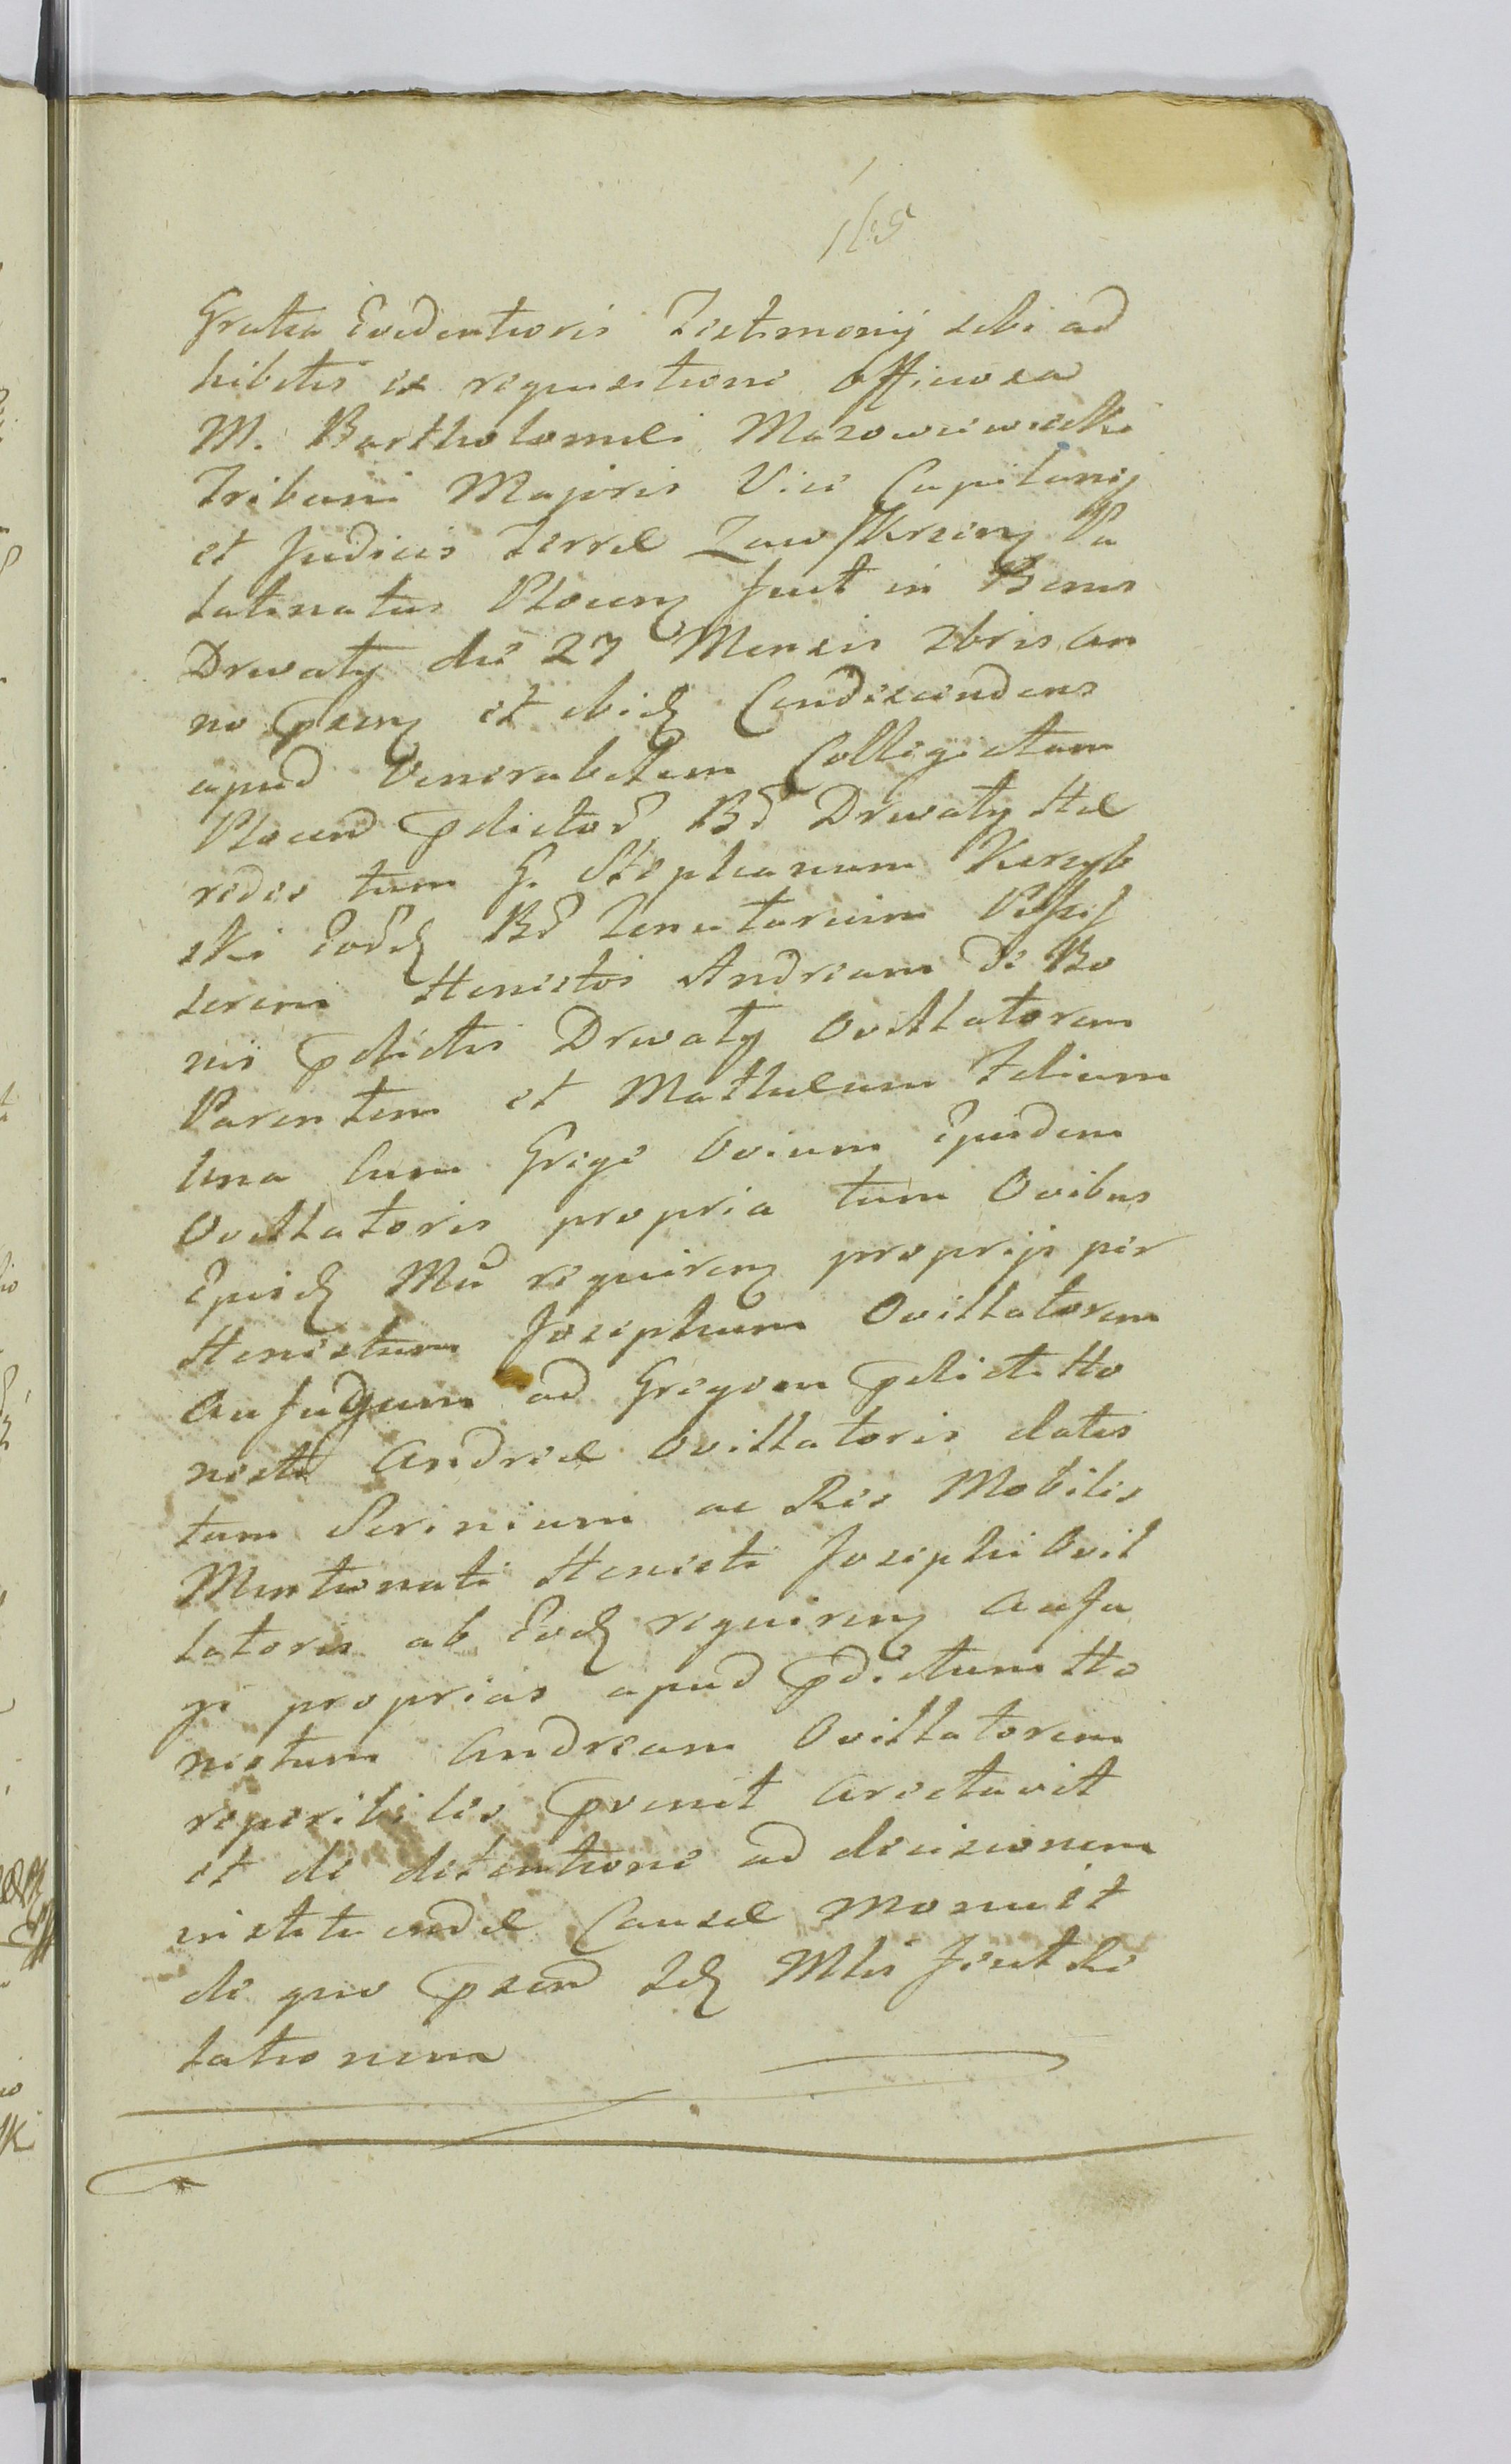 165
Gratia Evidentioris Testimonij sibi ad
hibitis ex requisitione officiosa
M. Bartholomæi Mazowiewiecki
Tribuni Majoris Vice Capitanij
et Judicis Terræ Zawskrzeny Pa
latinatus Plocen Fuit in Bonis
Drwały die 27 Mensis Xbris an
no psen et ibid Condescendens
apud Venerabilem Collegiatam
Plocen pdictor Br Drwały Hæ
redes tum G. Stephanum
ski Eord Br Tenutarium Posses
sorem Honestos Andream de Bo
nis pdictis Drwały Ovillatorem
Parentem et Mathæum Filium
Una Cum Grege Ovium Ejusdem
Ovillatoris propria tum Ovibus
Ejusd Mci requiren proprijs per
Honestum Josephum Ovillatorem
Aufugum ad Gregem pdicti Ho
nesti Andreæ Ovillatoris datis
tum Scrinium ac Res Mobiles
Mentionati Honesti Josephi Ovil
latoris ab Eod requiren Aufu
gi proprias apud pdictum Ho
nestum Andream Ovillatorem
reperibiles pvenit Arestavit
et de detentione ad decisionem
instituendæ Causæ Monuit
de quo psen Id Mlis Fecit Re
lationem